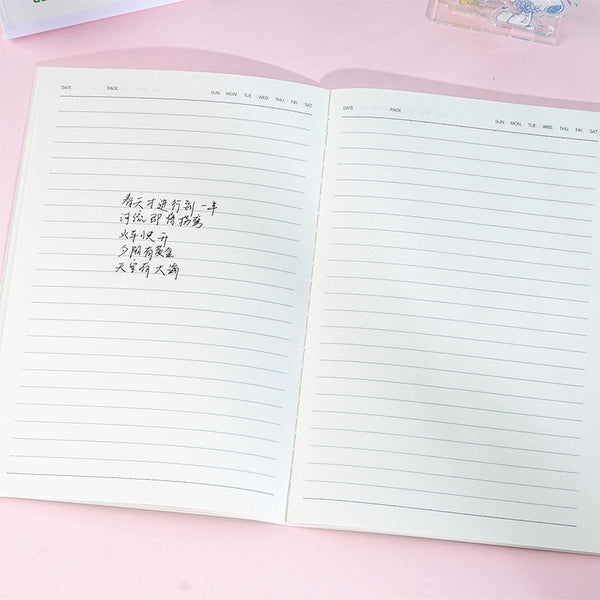 DATE PAGE SUN. MON. TUE. WED. THU. FRI. SAT.
春天才进行到一半
河流即将拐弯
火车快开
夕阳有黄金
天空有大海
DATE PAGE SUN. MON. TUE. WED. THU. FRI. SAT.